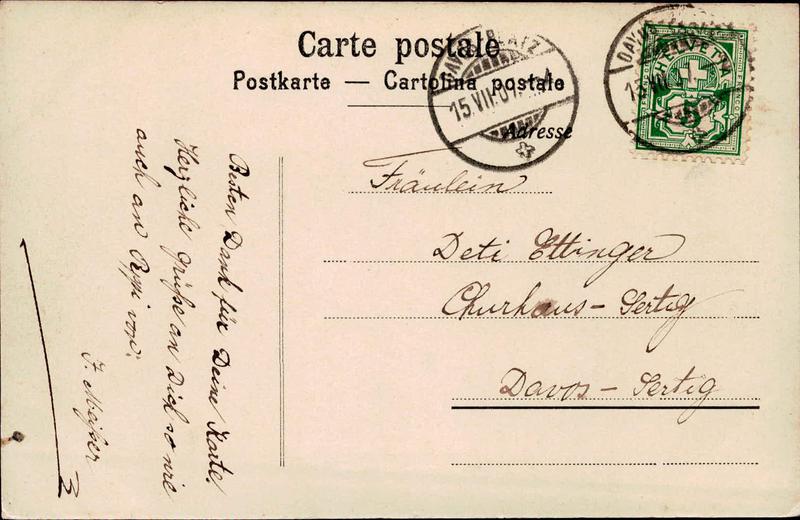 Carte postale
Postkarte — Cartolina postale
Adresse
DAVOS-PLATZ
15.VII.07
HELVETIA
Fräulein
Deti Ettinger
Churhaus-Sertig
Davos-Sertig
Besten Dank für Deine Karte.
Herzliche Grüße an Dich so wie
auch an Papi von:
J.